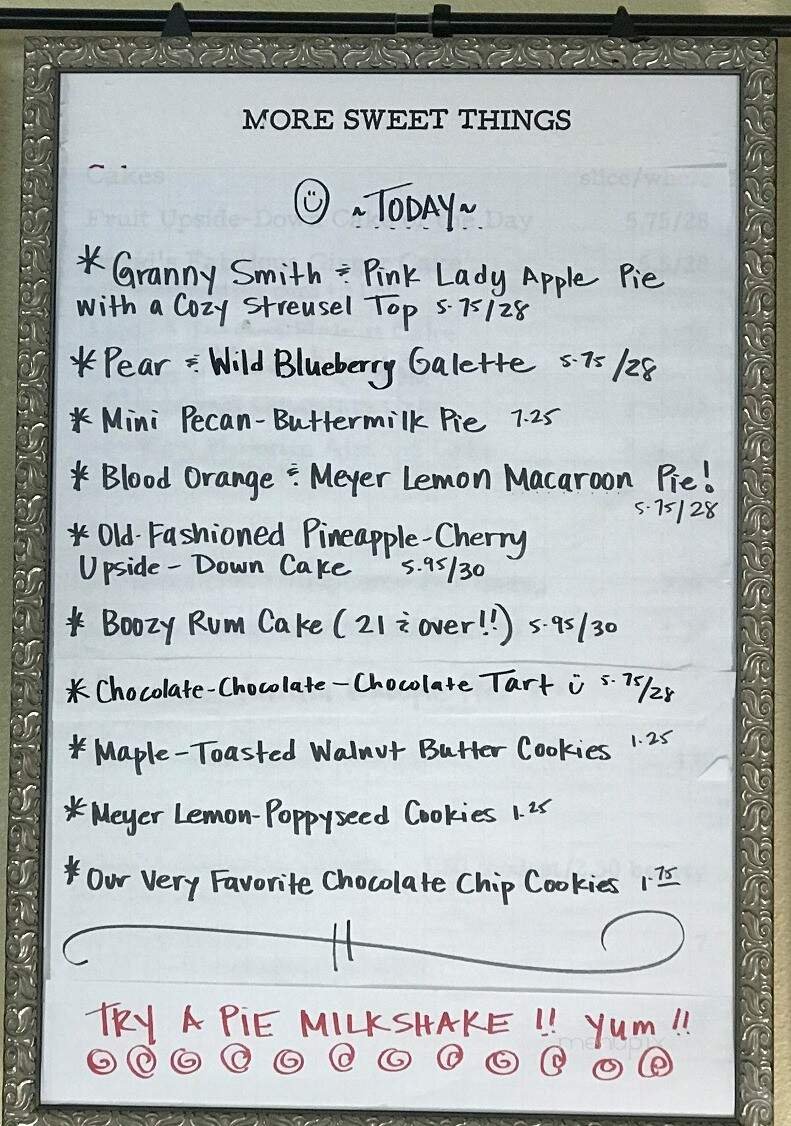 MORE SWEET THINGS
Cakes slice/whole
~TODAY~
Fruit Upside-Down Cake of the Day 5.75/28
* Granny Smith & Pink Lady Apple Pie
with a Cozy Streusel Top 5.75/28
* Pear & Wild Blueberry Galette 5.75/28
* Mini Pecan-Buttermilk Pie 7.25
* Blood Orange & Meyer Lemon Macaroon Pie!
5.75/28
* Old-Fashioned Pineapple-Cherry
Upside-Down Cake 5.95/30
* Boozy Rum Cake (21 & over!!) 5.95/30
* Chocolate-Chocolate-Chocolate Tart ü 5.75/28
* Maple-Toasted Walnut Butter Cookies 1.25
* Meyer Lemon-Poppyseed Cookies 1.25
* Our Very Favorite Chocolate Chip Cookies 1.75
TRY A PIE MILKSHAKE !! Yum !!
menupix